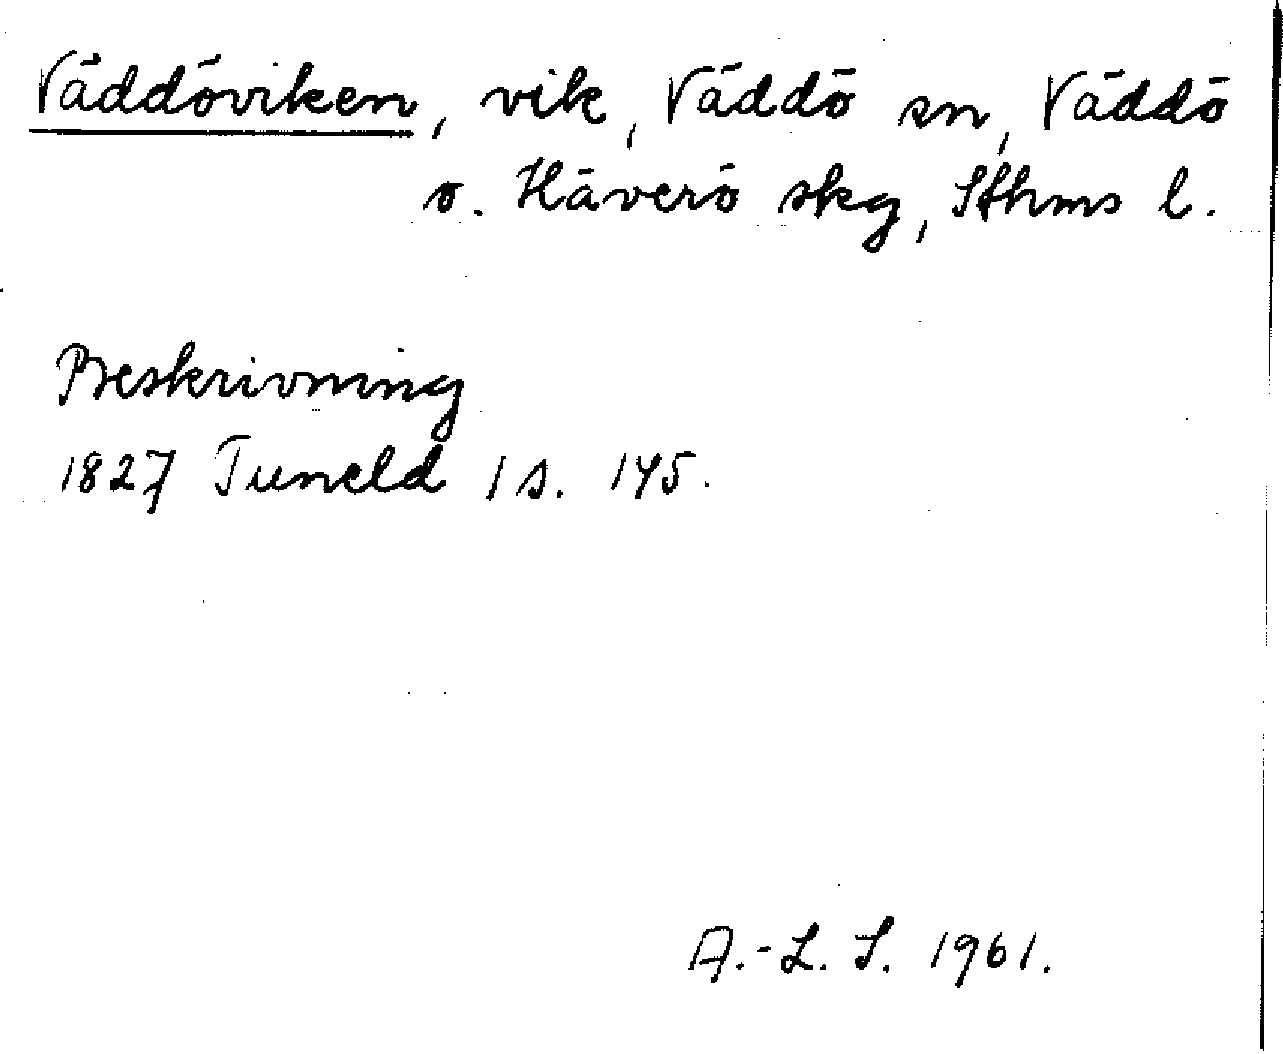 Väddöviken, vik, Väddö sn, Väddö
o. Häverö skg, Sthms l.
Beskrivning
1827 Tuneld 1 s. 145.
A.-L. S. 1961.